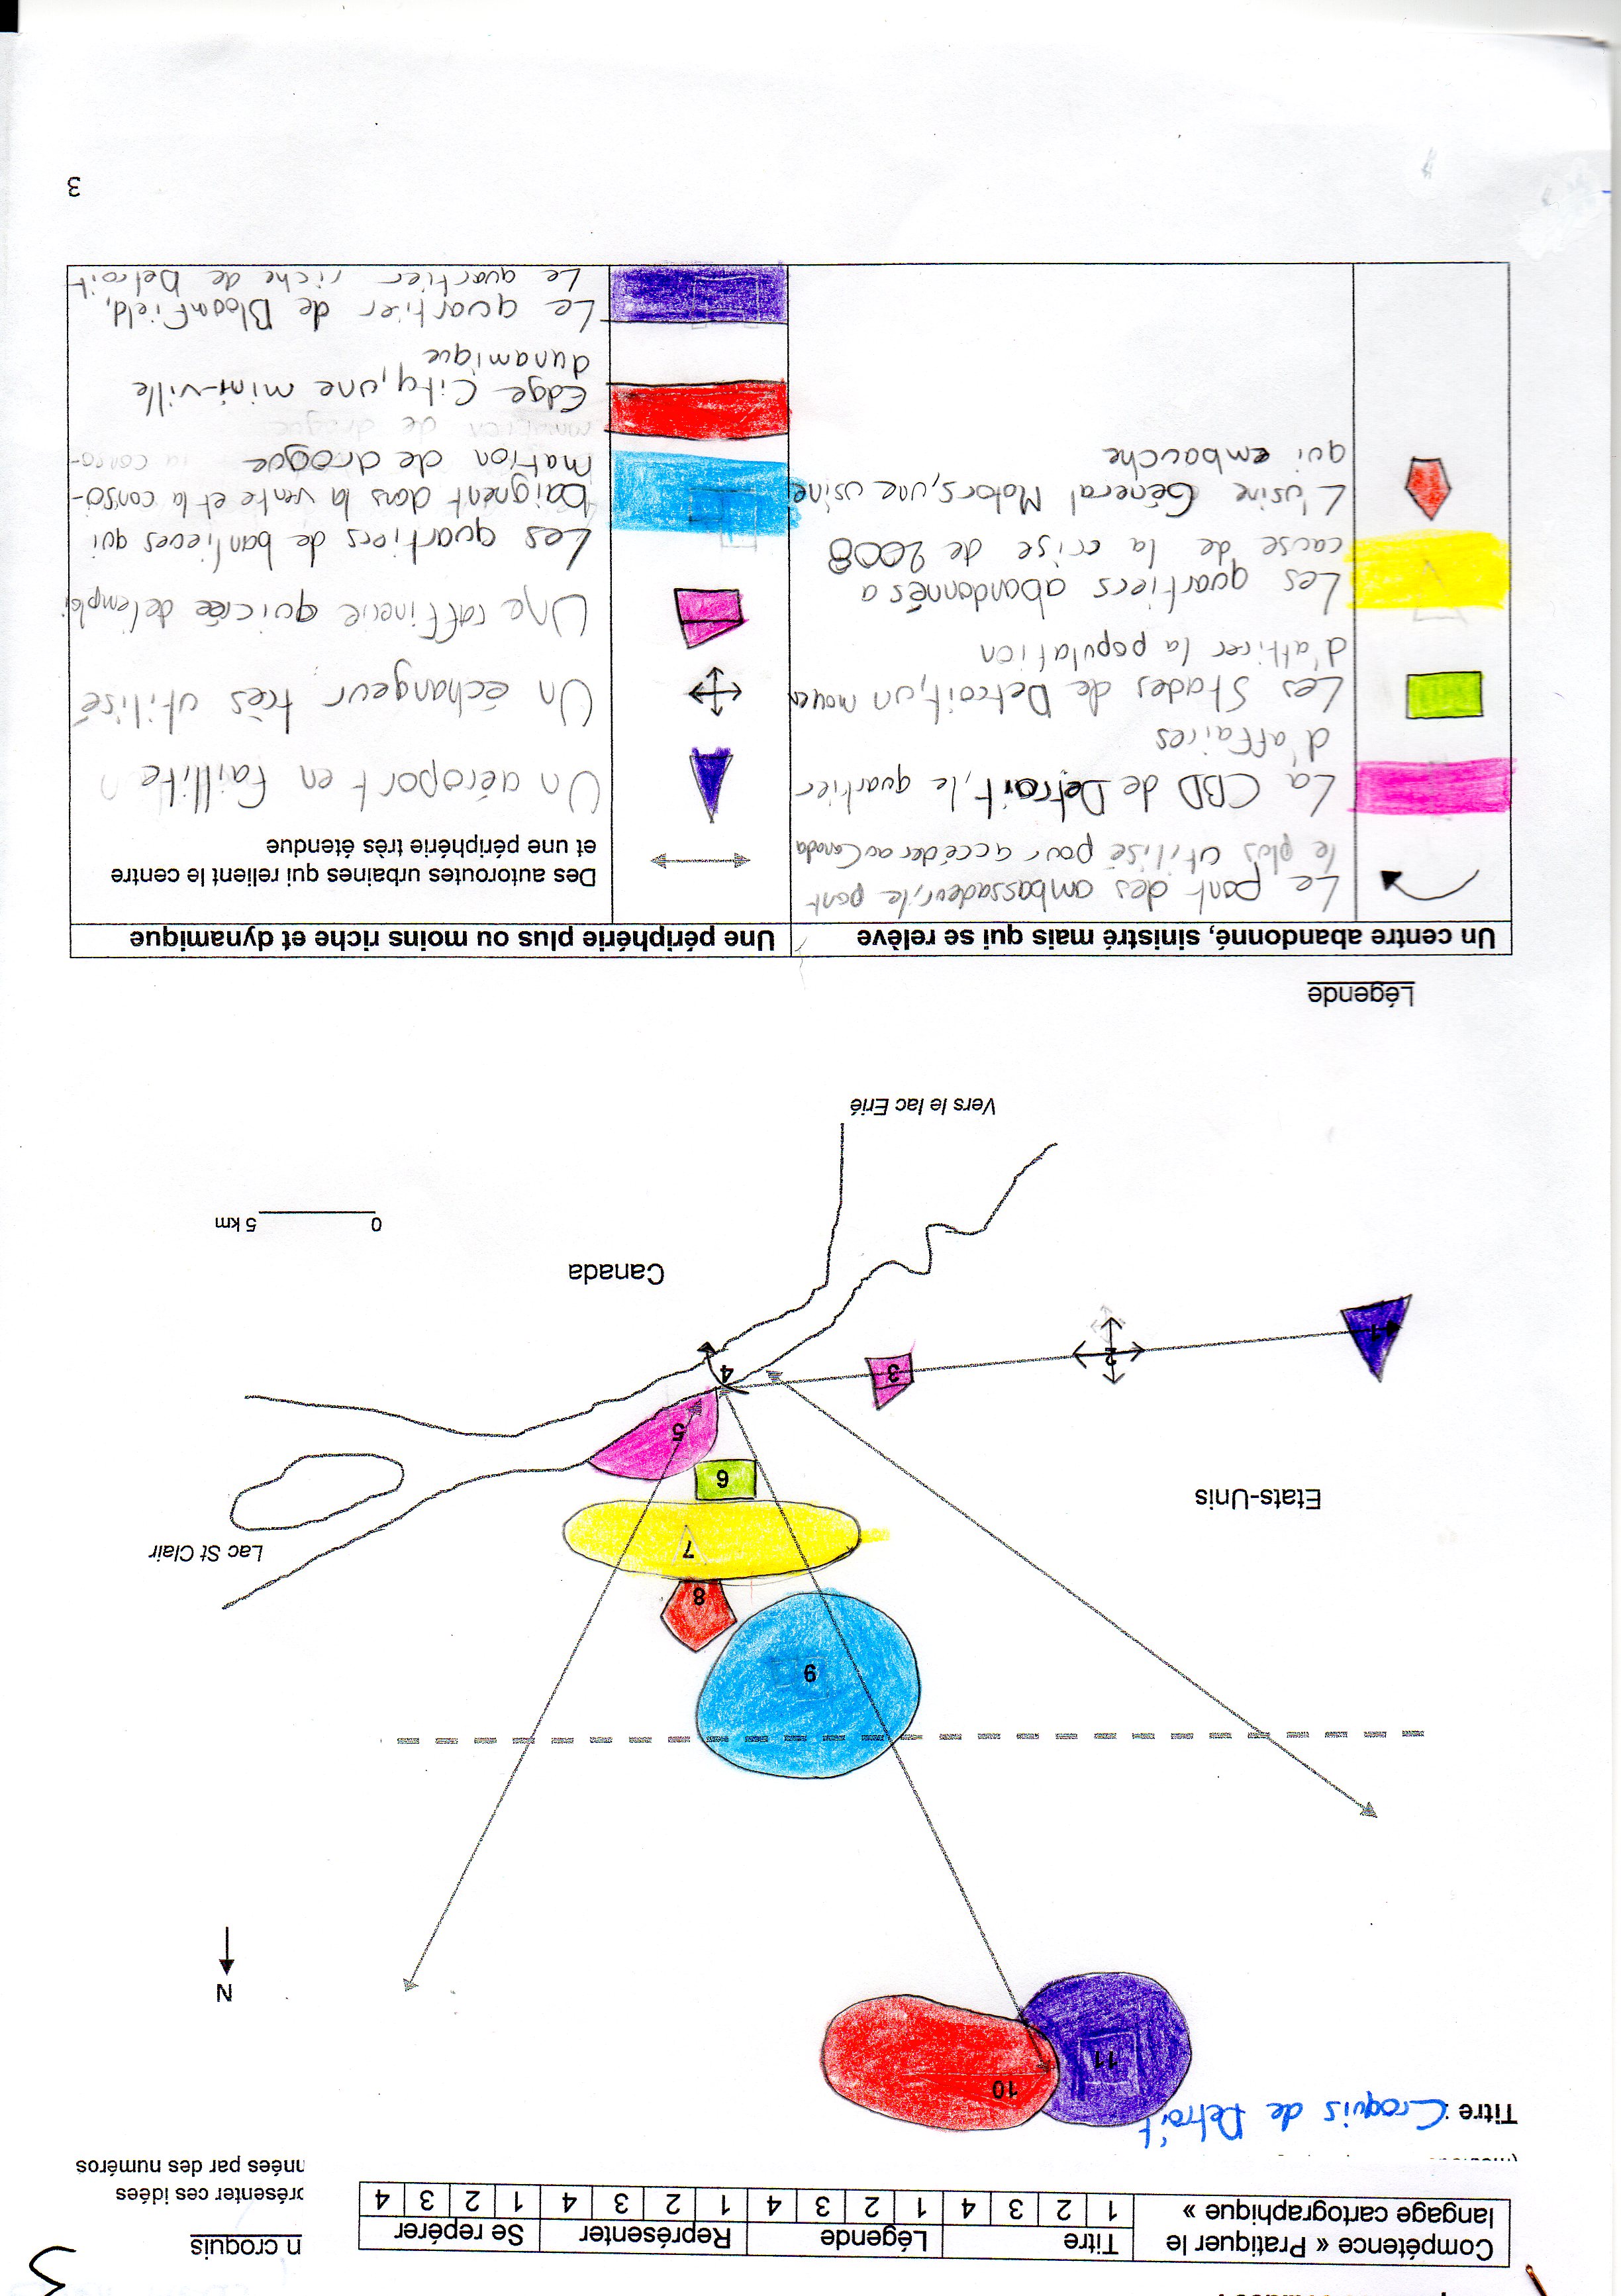 Compétence « Pratiquer le langage cartographique »
Titre Légende Représenter Se repérer
1 2 3 4 1 2 3 4 1 2 3 4 1 2 3 4
n croquis
présenter ces idées
nnées par des numéros
Titre : Croquis de Detroit
11
10
N
9
8
7
Lac St Clair
6
Etats-Unis
5
4
3
2
1
Canada
0 5 km
Vers le lac Erié
Légende
Un centre abandonné, sinistré mais qui se relève
Le pont des ambassadeur, le pont
le plus utilisé pour accéder au Canada
La CBD de Detroit, le quartier
d'affaires
Les Stades de Detroit, un moyen
d'attirer la population
Les quartiers abandonnés a
cause de la crise de 2008
L'usine Général Motors, une usine
qui embauche
Une périphérie plus ou moins riche et dynamique
Des autoroutes urbaines qui relient le centre
et une périphérie très étendue
Un aéroport en faillite
Un échangeur très utilisé
Une raffinerie qui crée de l'emploi
Les quartiers de banlieues qui
baignent dans la vente et la conso-
mation de drogue
Edge City, une mini-ville
dunamique
Le quartier de Bloomfield,
Le quartier riche de Detroit
3